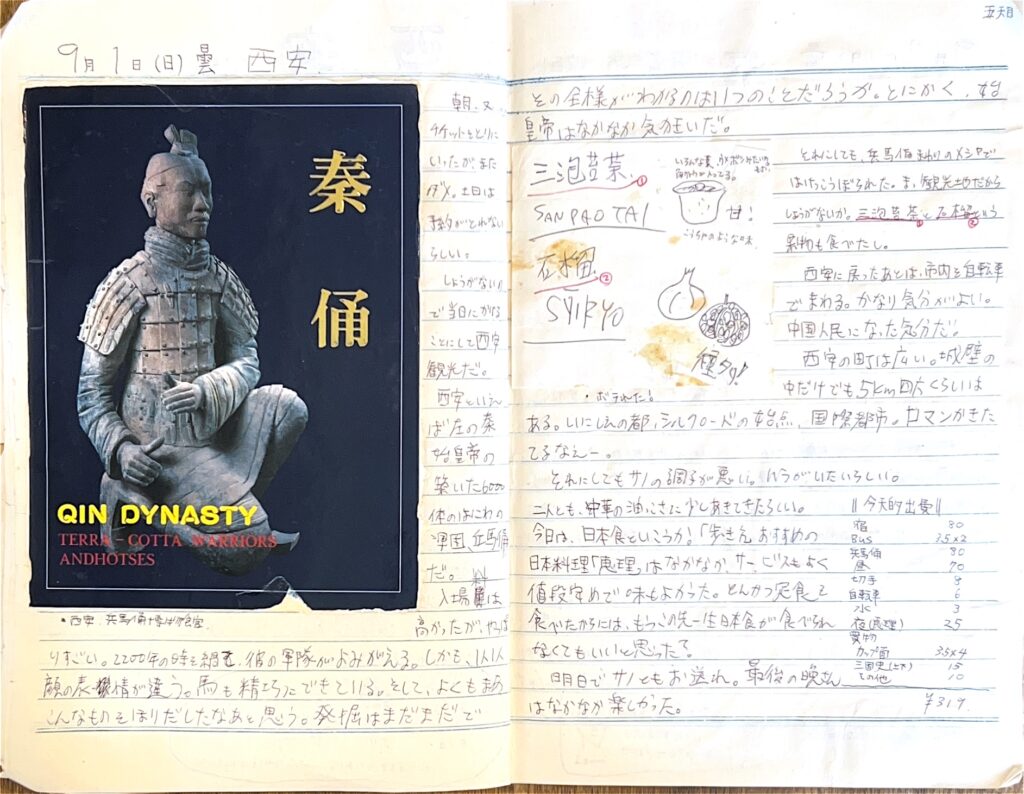 五天目
9月1日(日)曇 西安
秦俑
QIN DYNASTY
TERRA-COTTA WARRIORS
ANDHOTSES
・西安、兵馬俑博物館
朝、又
チケットをとりに
いったが、また
ダメ。土日は
予約がとれない
らしい。
しょうがないの
で当日にかける
ことにして西安
観光だ。
西安といえ
ば左の秦
始皇帝の
築いた6000
体のはにわの
軍団、兵馬俑
だ。
入場料は
高かったが、やっぱ
りすごい。2200年の時を経て、彼の軍隊がよみがえる。しかも、1人1人
顔の表情が違う。馬も精巧にできている。そして、よくもまあ
こんなものをほりだしたなあと思う。発掘はまだまだで
その全様がわかるのはいつのことだろうか。とにかく、始
皇帝はなかなか気分狂いだ。
三泡苔菜 ①
SAN PAO TAI
甘!
こうちゃのような味
石榴 ②
SYIRYO
種タク!
・ボラれた!
それにしても、兵馬俑まわりのメシヤで
はけっこうぼられた。ま、観光地だから
しょうがないか。三泡苔茶と石榴という
果物も食べたし。
西安に戻ったあとは、市内を自転車
でまわる。かなり気分がよい。
中国人民になった気分だ。
西安の町は広い。城壁の
中だけでも5km四方くらいは
ある。いにしえの都、シルクロードの始点、国際都市。ロマンかきた
てるなえー。
それにしてもサノの調子が悪い。いがいたいらしい。
二人とも、中華の油っこさに少しあきてきたらしい。
今日は、日本食というか。「歩き」おすすめの
日本料理「恵理」はなかなか、サービスもよく
値段安めで味もよかった。とんかつ定食を
食べたからには、もうこの先一生日本食が食べられ
なくてもいいと思った。
明日でサノともお送れ。最後の晩さん
はなかなか楽しかった。
‖今天的出費‖
宿 80
BUS 35×2
兵馬俑 80
昼 70
切手 8
自転車 6
水 3
夜(恵理) 25
買物
カップ面 3.5×4
三国史(上下) 15
その他 10
¥319.